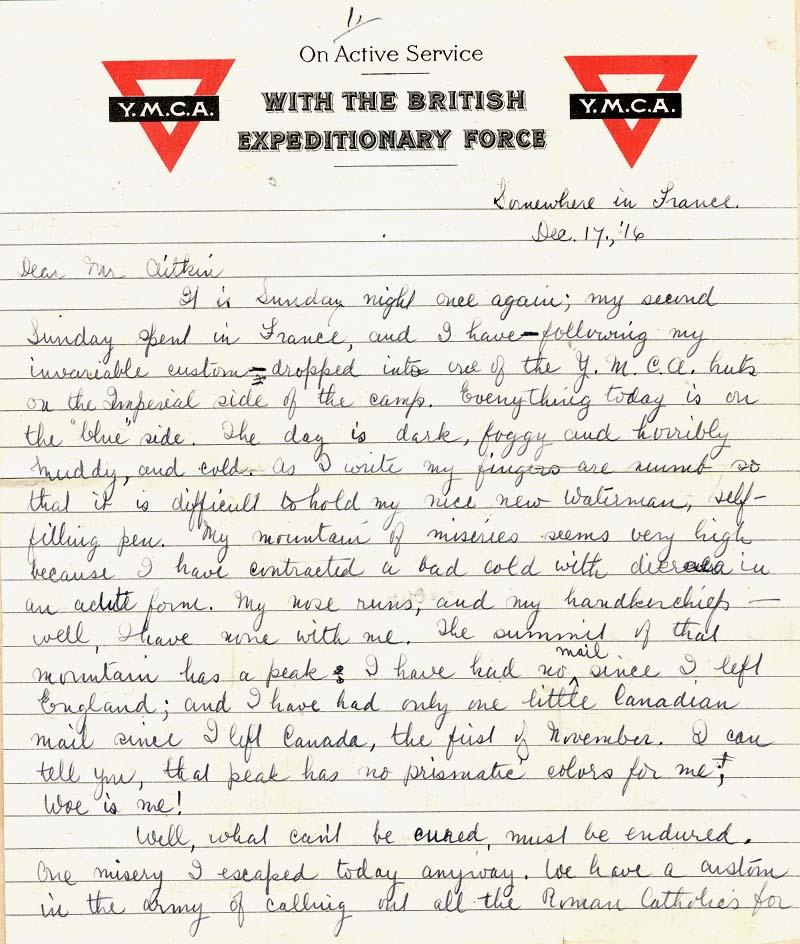 1,
On Active Service
WITH THE BRITISH
EXPEDITIONARY FORCE
Y.M.C.A.
Y.M.C.A.
Somewhere in France.
Dec. 17., '16
Dear Mr Aitkin
It is Sunday night once again; my second
Sunday spent in France, and I have—following my
invariable custom—dropped into one of the Y.M.C.A. huts
on the Imperial side of the camp. Everything today is on
the "blue" side. The day is dark, foggy and horribly
muddy, and cold. As I write my fingers are numb so
that it is difficult to hold my nice new Waterman, self-
filling pen. My mountain of miseries seems very high
because I have contracted a bad cold with in
an acute form. My nose runs, and my handkerchiefs —
well, I have none with me. The summit of that
mountain has a peak: I have had no mail since I left
England; and I have had only one little Canadian
mail since I left Canada, the first of November. I can
tell you, that peak has no prismatic colors for me;
Woe is me!
Well, what can't be cured, must be endured.
One misery I escaped today anyway. We have a custom
in the army of calling out all the Roman Catholics for